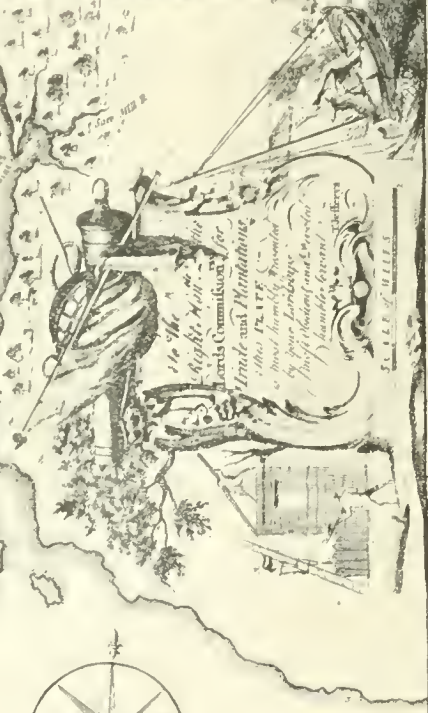 Saw Mill R
To The
Right Hon. the
Lords Commissioners for
Trade and Plantations
this PLATE
is most humbly Presented
by your Lordships
most Obedient and Devoted
humble Servant
T. Jefferys
SCALE of MILES